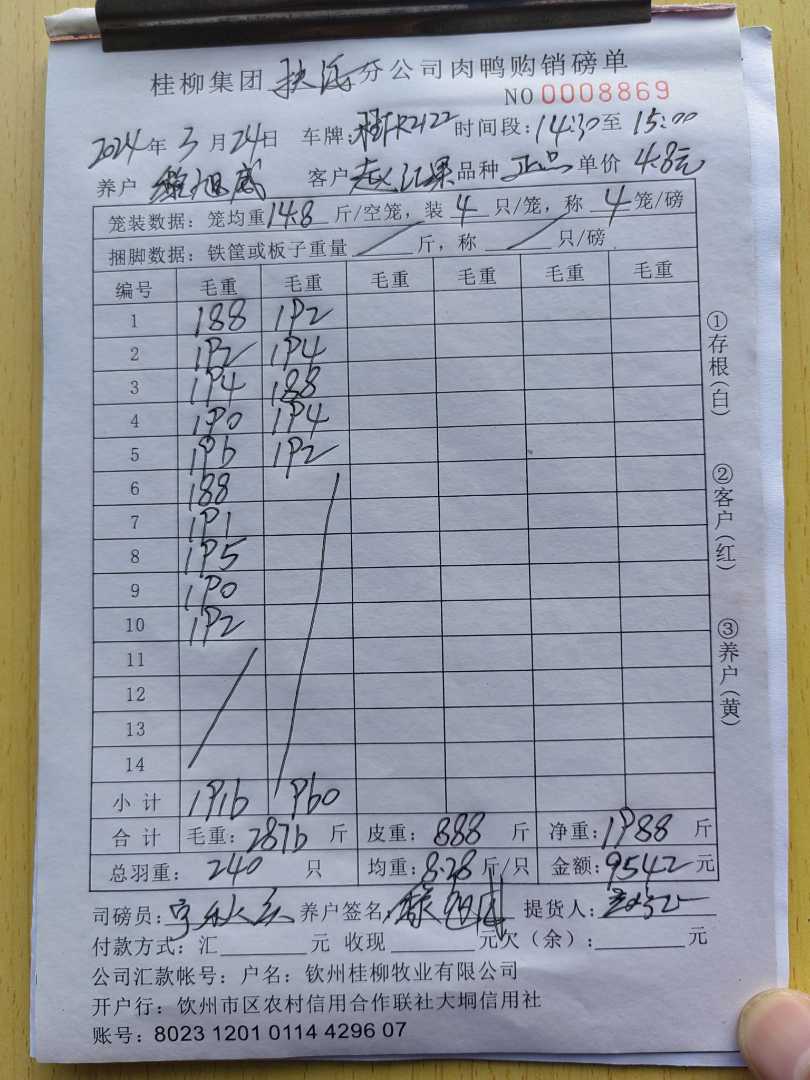 桂柳集团扶绥分公司肉鸭购销磅单
NO 0008869
2024年3月24日 车牌: R2122 时间段:14:30至15:00
养户 旭威 客户 赵江果 品种 正品 单价 4.8元
笼装数据:笼均重14.8斤/空笼,装4只/笼,称4笼/磅
捆脚数据:铁筐或板子重量 斤,称 只/磅
编号 毛重 毛重 毛重 毛重 毛重 毛重
1 188 192
2 192 194
3 194 188
4 190 194
5 196 192
6 188
7 191
8 195
9 190
10 192
11
12
13
14
小计 1916 960
合计 毛重:2876斤 皮重:888斤 净重:1988斤
总羽重:240只 均重:8.28斤/只 金额:9542元
司磅员: 养户签名: 旭威 提货人:
付款方式:汇 元 收现 元欠(余): 元
公司汇款帐号:户名:钦州桂柳牧业有限公司
开户行:钦州市区农村信用合作联社大垌信用社
账号:8023 1201 0114 4296 07
①存根(白)
②客户(红)
③养户(黄)